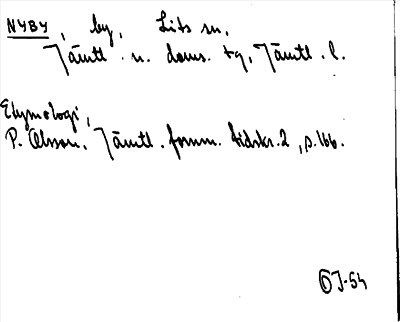 NYBY, by, Lits sn,
Jämtl. n. doms. tg, Jämtl. l.
Etymologi,
P. Olsson, Jämtl. fornm. tidskr. 2, s. 166.
OJ-54